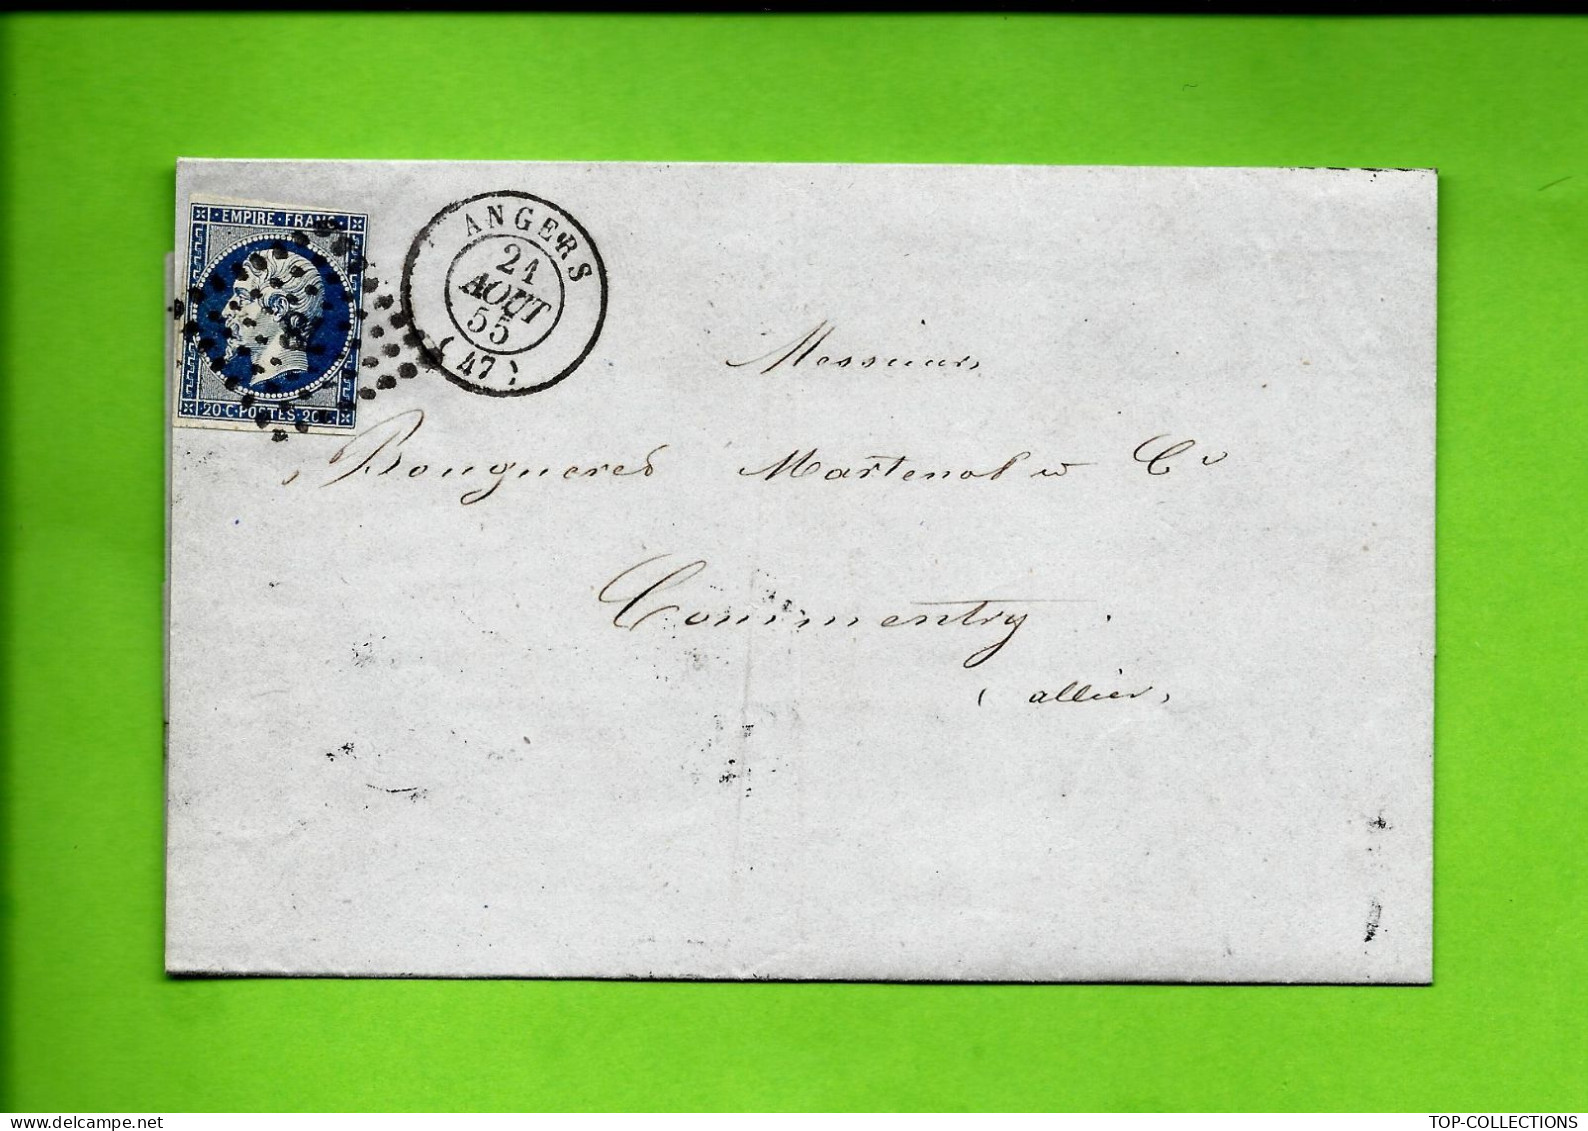 EMPIRE · FRANC ·
20 C · POSTES · 20 C
ANGERS
21
AOUT
55
(47)
Messieurs
Bougueret Martenot et Cie
Commentry
(allier)
TOP-COLLECTIONS